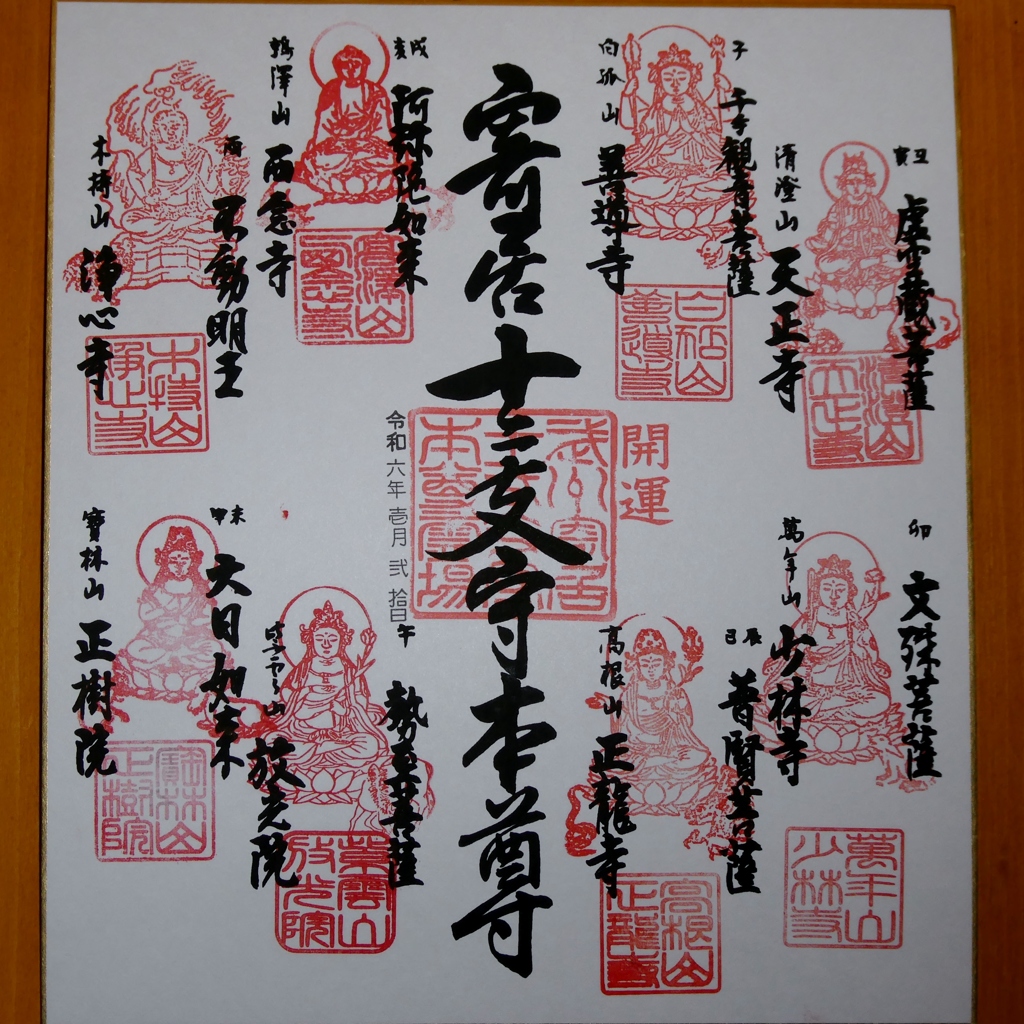 丑
寅
虚空蔵菩薩
清澄山
天正寺
清澄山
天正寺
子
千手観音菩薩
白狐山
善導寺
白狐山
善導寺
寄居十二支守本尊
開運
令和六年壱月弐拾日
戌
亥
阿弥陀如来
西念寺
酉
不動明王
木持山
浄心寺
木持山
浄心寺
卯
文殊菩薩
萬年山
少林寺
萬年山
少林寺
辰
巳
普賢菩薩
高根山
正龍寺
高根山
正龍寺
午
勢至菩薩
放光院
放光院
未
申
大日如来
寶林山
正樹院
寶林山
正樹院